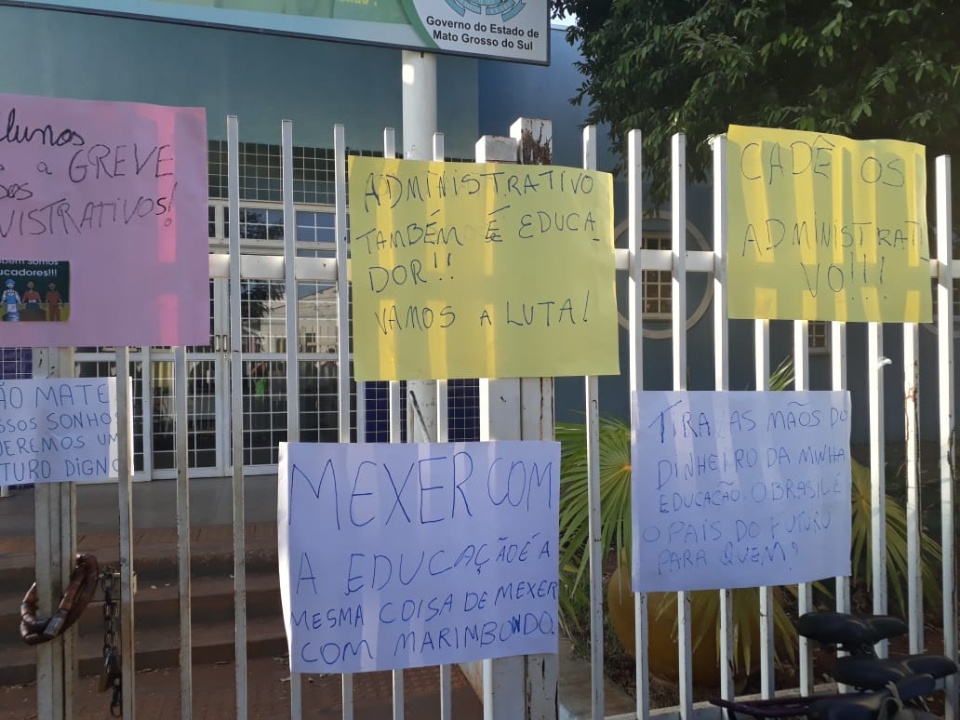 Governo do Estado de
Mato Grosso do Sul
lunos
a GREVE
dos
NISTRATIVOS!
bém somos
ucadores!!!
ADMINISTRATIVO
TAMBÉM É EDUCA-
DOR!!
VAMOS A LUTA!
CADÊ OS
ADMINISTRATI
VO!!!
ÃO MATE
SSOS SONHO
UEREMOS UM
UTURO DIGNO
MEXER COM
A EDUCAÇÃO É A
MESMA COISA DE MEXER
COM MARIMBONDO.
TIRA AS MÃOS DO
DINHEIRO DA MINHA
EDUCAÇÃO. O BRASIL É
O PAÍS DO FUTURO
PARA QUEM?